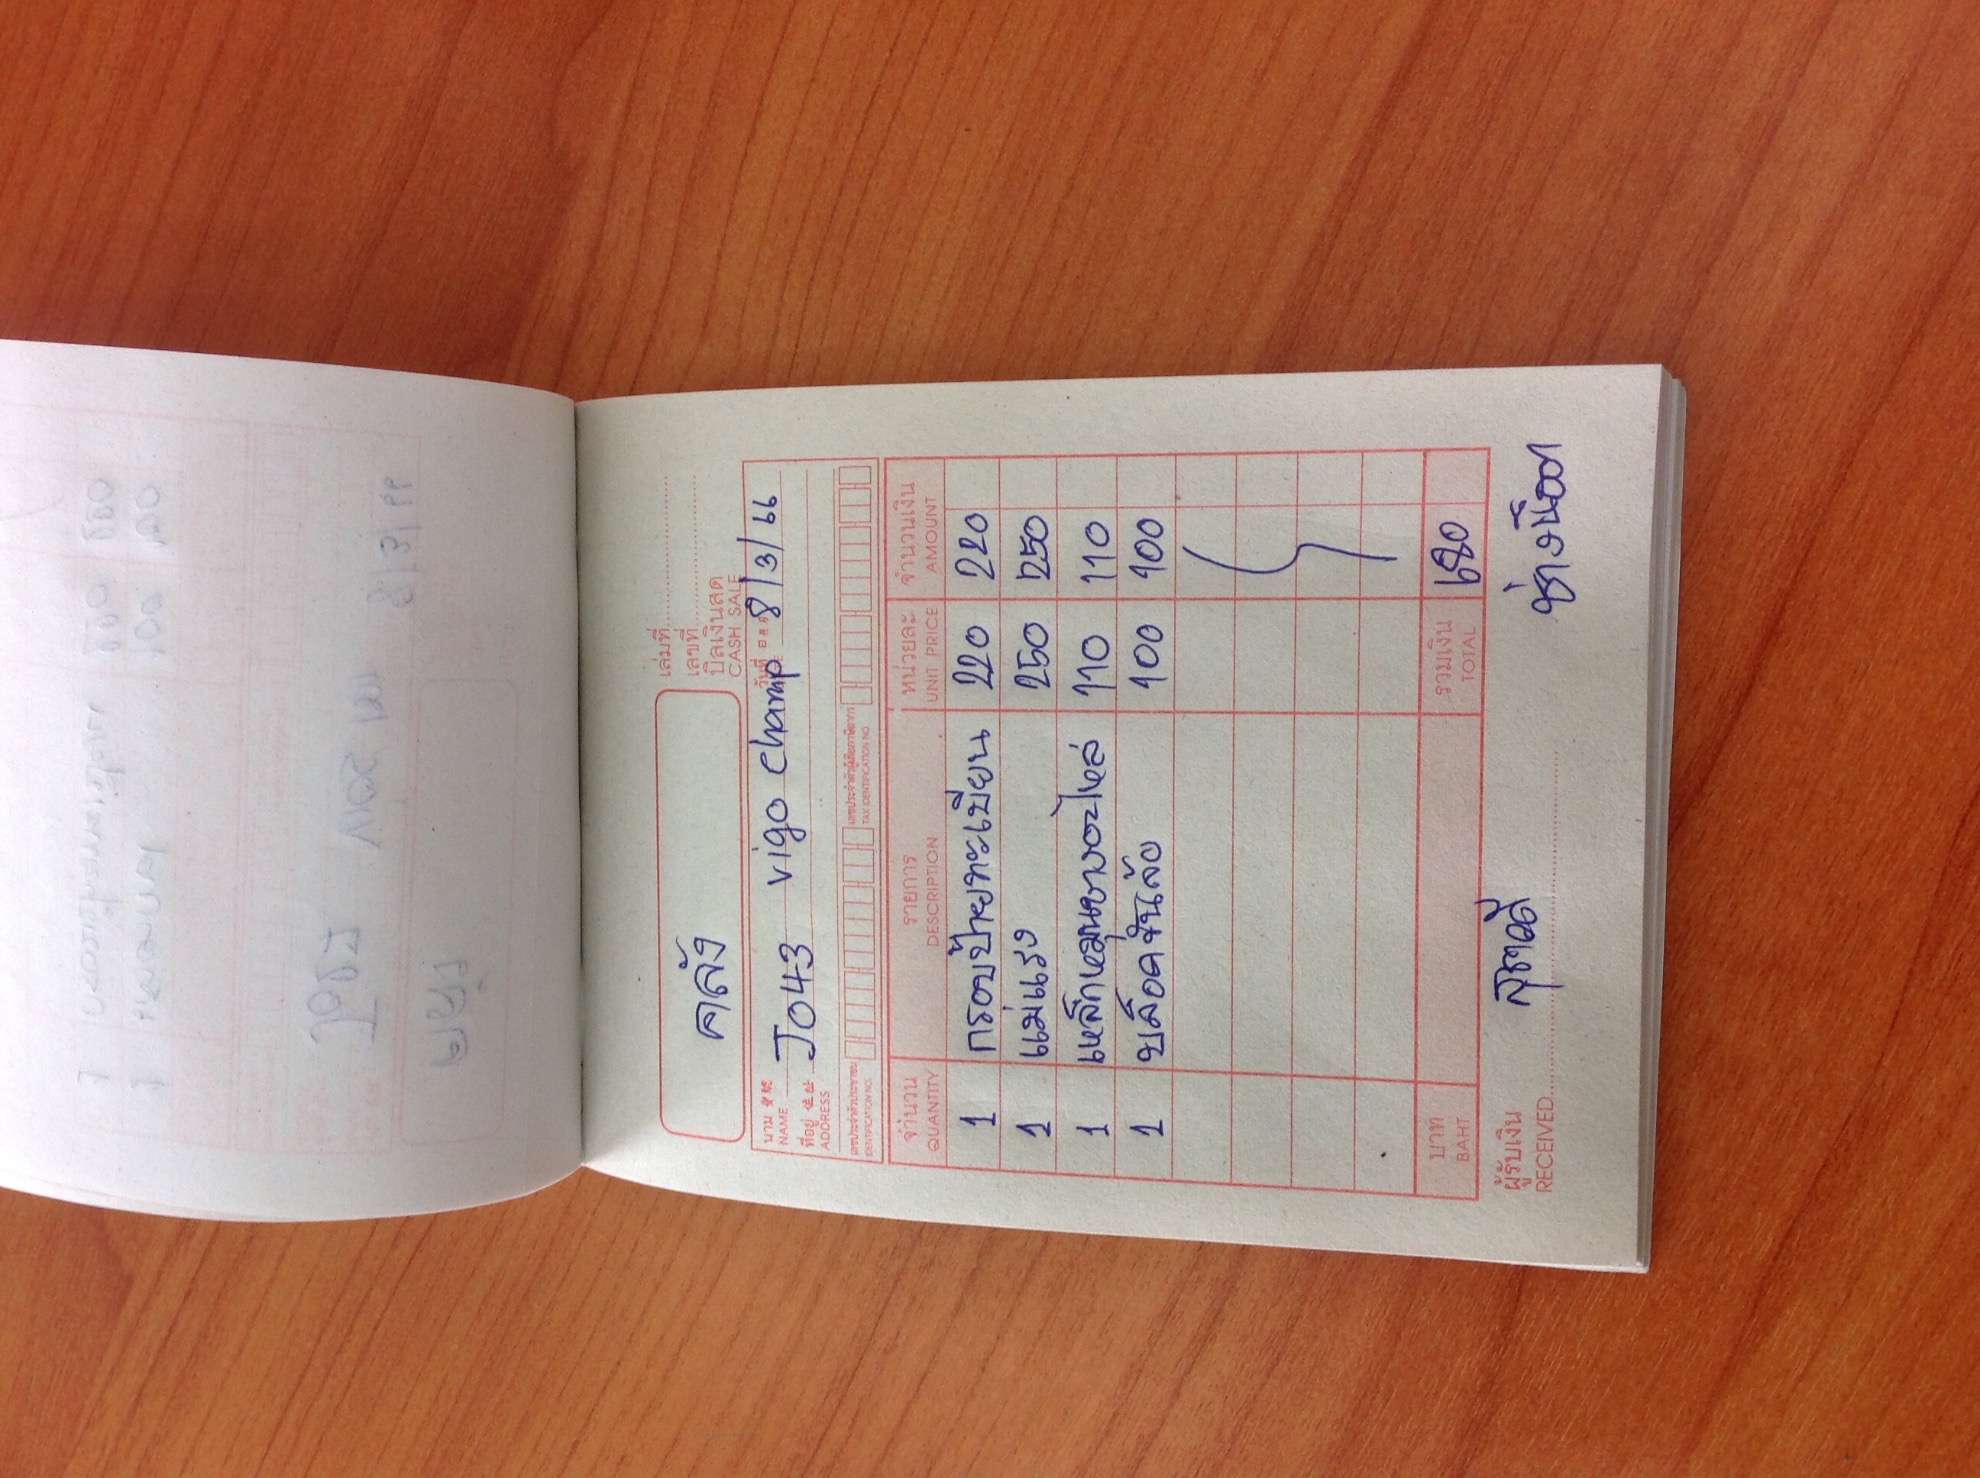 เล่มที่
เลขที่
บิลเงินสด
CASH SALE
คลัง
นาม
NAME
J043 vigo champ
วันที่ 8/3/66
ที่อยู่
ADDRESS
เลขประจำตัวประชาชน
IDENTIFICATION NO.
เลขประจำตัวผู้เสียภาษีอากร
TAX IDENTIFICATION NO.
จำนวน รายการ หน่วยละ จำนวนเงิน
QUANTITY DESCRIPTION UNIT PRICE AMOUNT
1 กรอบป้ายทะเบียน 220 220
1 แม่แรง 250 250
1 เหล็กหมุนยางอะไหล่ 110 110
1 บล็อคขันล้อ 100 100
บาท รวมเงิน 680
BAHT TOTAL
ผู้รับเงิน
RECEIVED